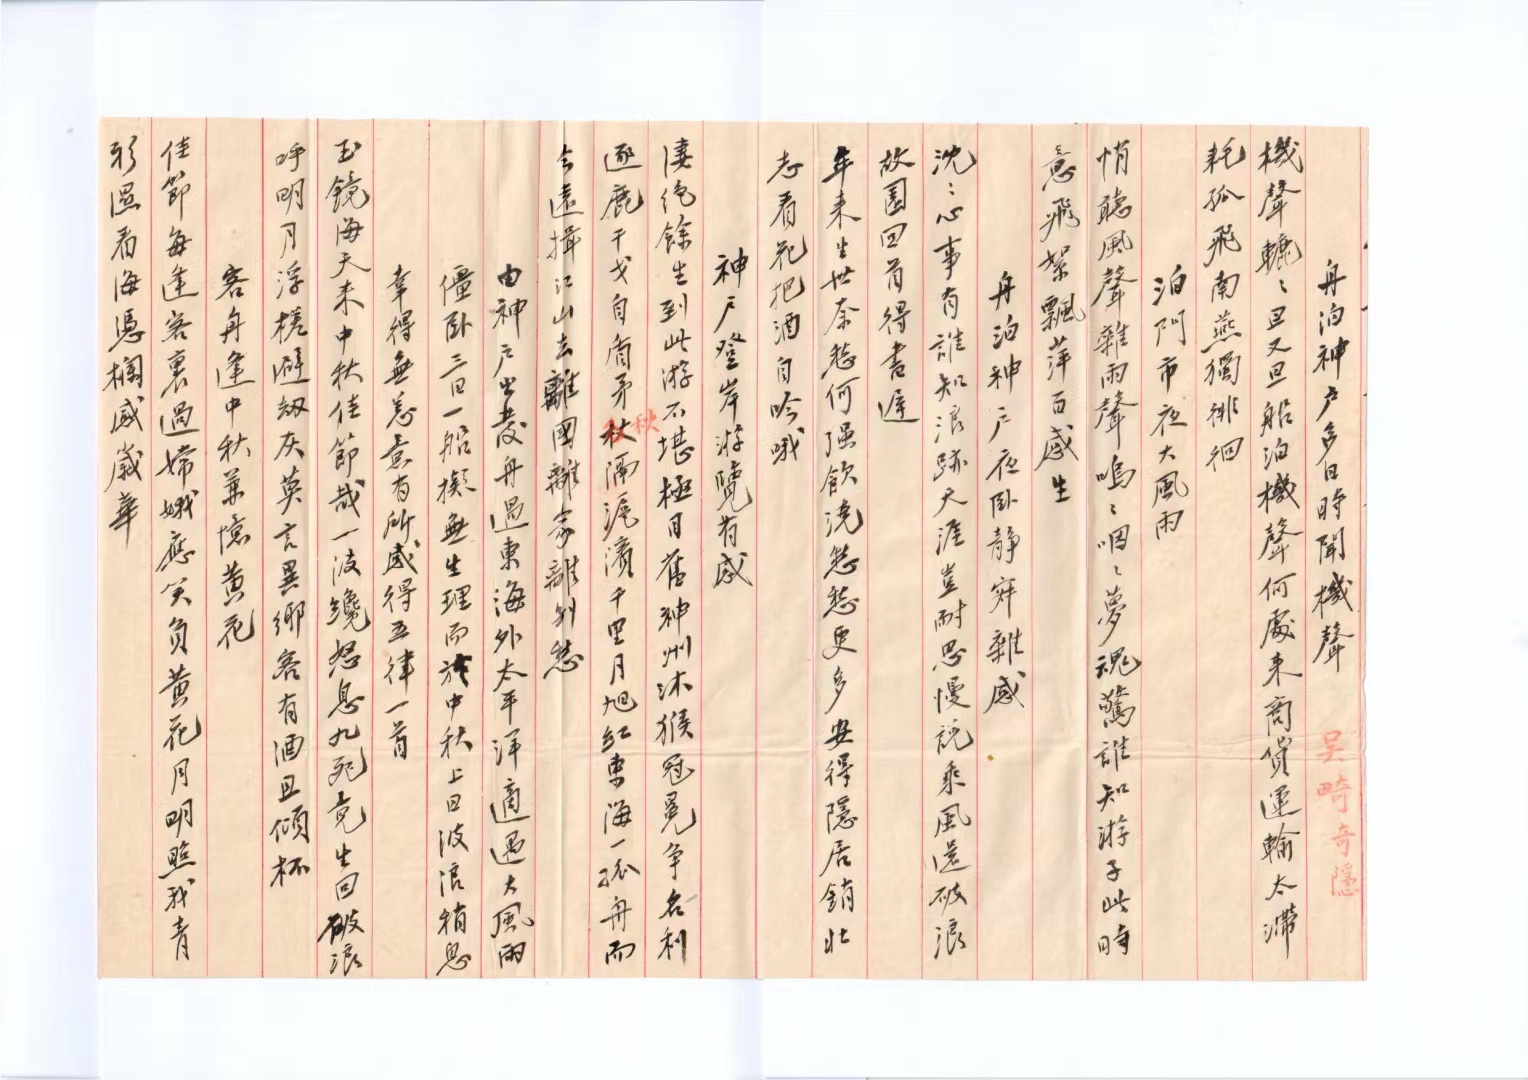 舟泊神戶多日時聞機聲 吳畸奇隱
機聲轆〻旦又旦船泊機聲何處來商貨運輸太滯
耗孤飛南燕獨徘徊
泊阿市夜大風雨
悄聽風聲雜雨聲嗚〻咽〻夢魂驚誰知游子此時
意飛絮飄萍百感生
舟泊神戶夜卧靜寂雜感
沈〻心事有誰知浪跡天涯豈耐思慢説乘風還破浪
故園回首得書遲
年來生世奈愁何强飲澆愁愁更多安得隱居銷壯
志看花把酒自吟哦
神戶登岸游覽有感
淒絕餘生到此游不堪極目舊神州沐猴冠冕争名利
逐鹿干戈自盾矛秋隔滬濱千里月旭紅東海一孤舟而
秋
今遠揖江山去離國離家離别愁
由神戶出發舟過東海外太平洋適遇大風雨
僵卧三日一船擬無生理而於中秋上日波浪稍息
幸得無恙意有所感得五律一首
玉鏡海天來中秋佳節哉一波纔怒息九死竟生回破浪
呼明月浮槎避劫灰莫言異鄉客有酒且傾杯
客舟逢中秋兼憶黄花
佳節每逢客裏過嫦娥應笑負黄花月明照我青
衫濕看海憑欄感歲華